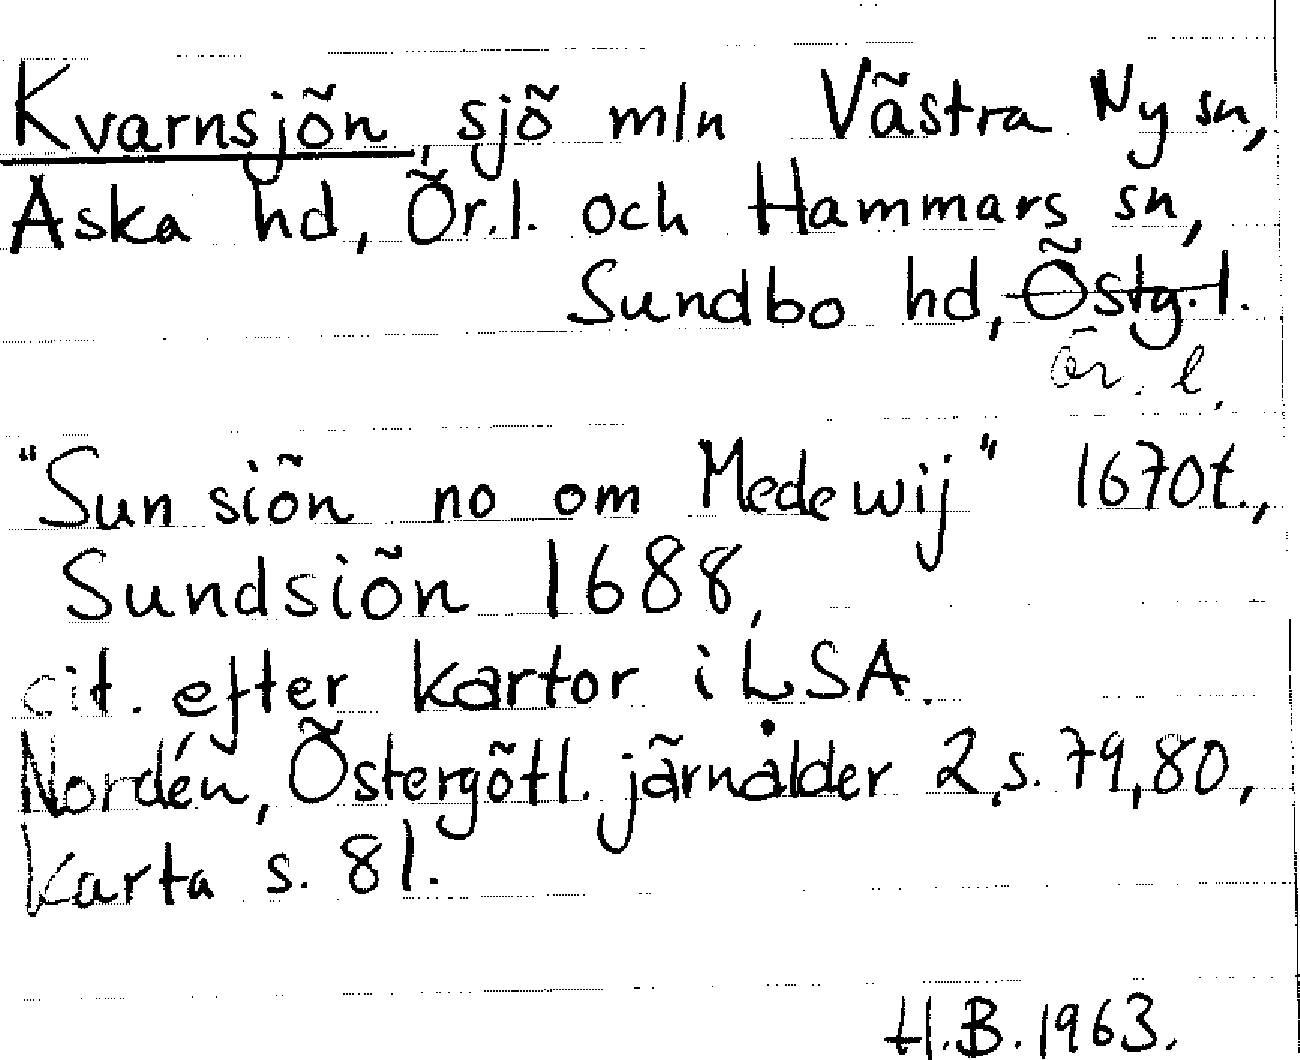 Kvarnsjön, sjö mln Västra Ny sn,
Aska hd, Ör.l. och Hammars sn,
Sundbo hd, Östg.l.
Ör. l.
"Sun siön no om Medewij" 1670t.,
Sundsiön 1688,
cit. efter kartor i LSA.
Nordén, Östergötl. järnålder 2, s. 79, 80,
karta s. 81.
H.B. 1963.